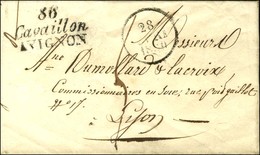 86
Cavaillon
AVIGNON
28
Messieurs
Dumollard & Lacroix
Commissionnaires en Soie, rue puits gaillot
n° 17.
Lyon